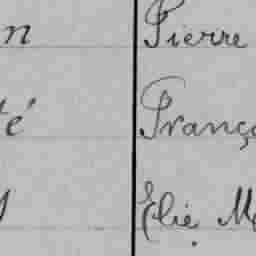 n Pierre
té França
Elie M